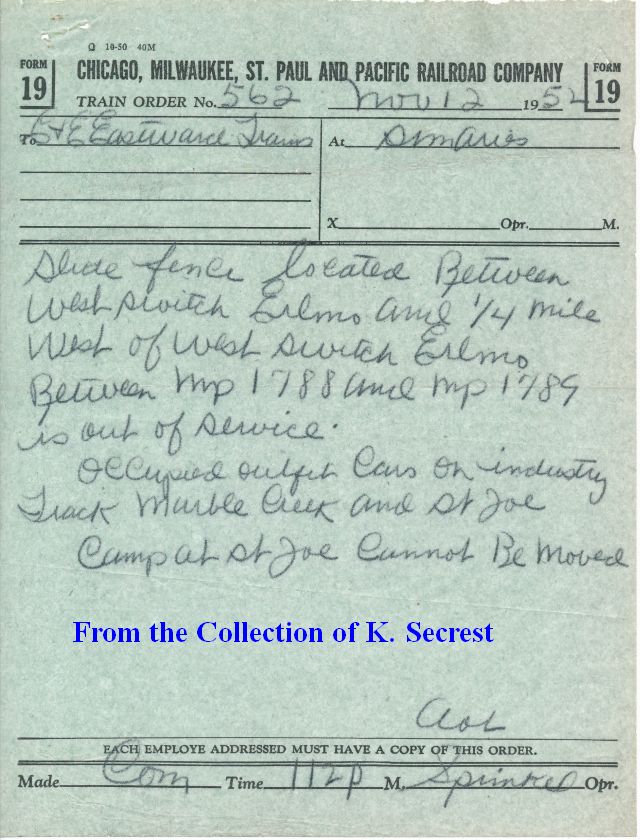 Q 10-50 40M
FORM 19 CHICAGO, MILWAUKEE, ST. PAUL AND PACIFIC RAILROAD COMPANY FORM 19
TRAIN ORDER No. 562 Nov 12 1952
To C&E Eastward Trains At St Maries
X Opr. M.
Slide fence located Between
West Switch Erlmo and 1/4 mile
West of West Switch Erlmo
Between Mp 1788 and Mp 1789
is out of service.
Occupied outfit Cars on industry
Track Marble Creek and St Joe
Camp at St Joe Cannot Be Moved
From the Collection of K. Secrest
EACH EMPLOYE ADDRESSED MUST HAVE A COPY OF THIS ORDER.
Made Com Time 112p M. Opr.